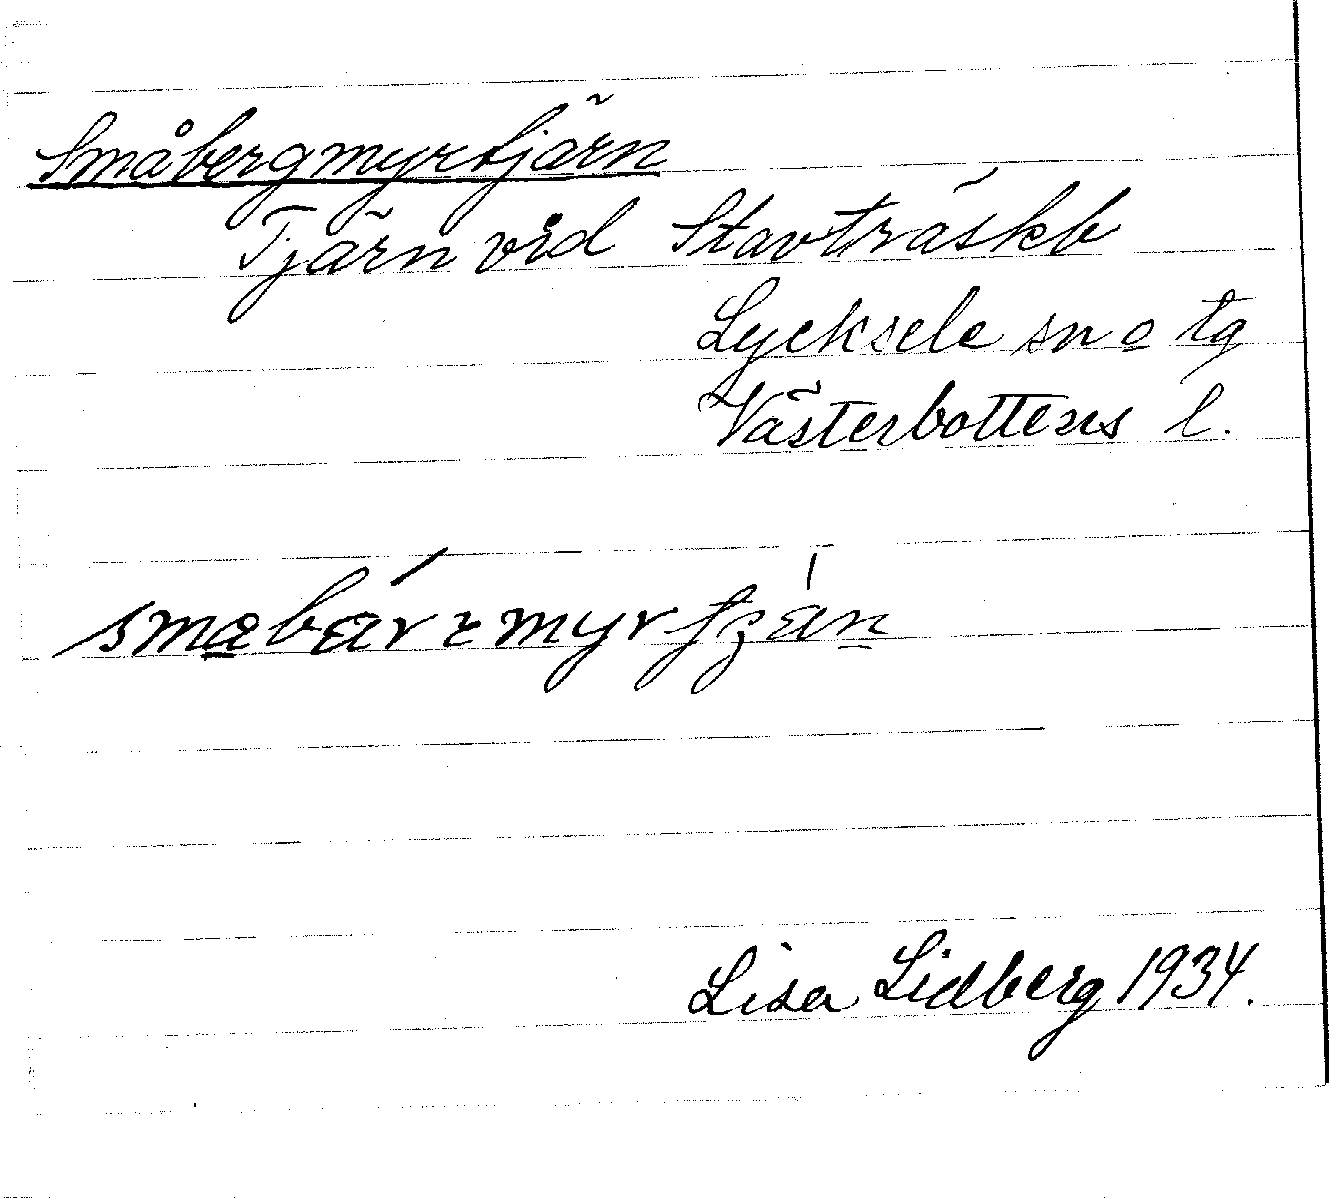 Småbergmyrtjärn
Tjärn vid Stavträskb
Lycksele sn o tg
Västerbottens l.
Lisa Lidberg 1934.